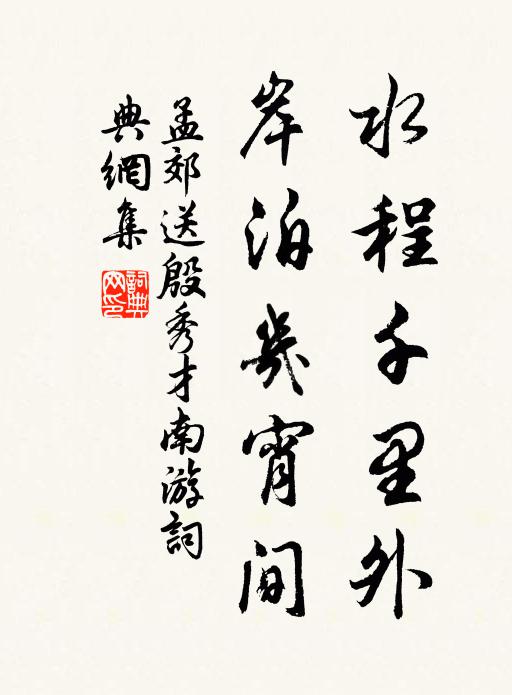 水程千里外
岸泊幾宵間
孟郊送殷秀才南游詞
典網集
詞典網印